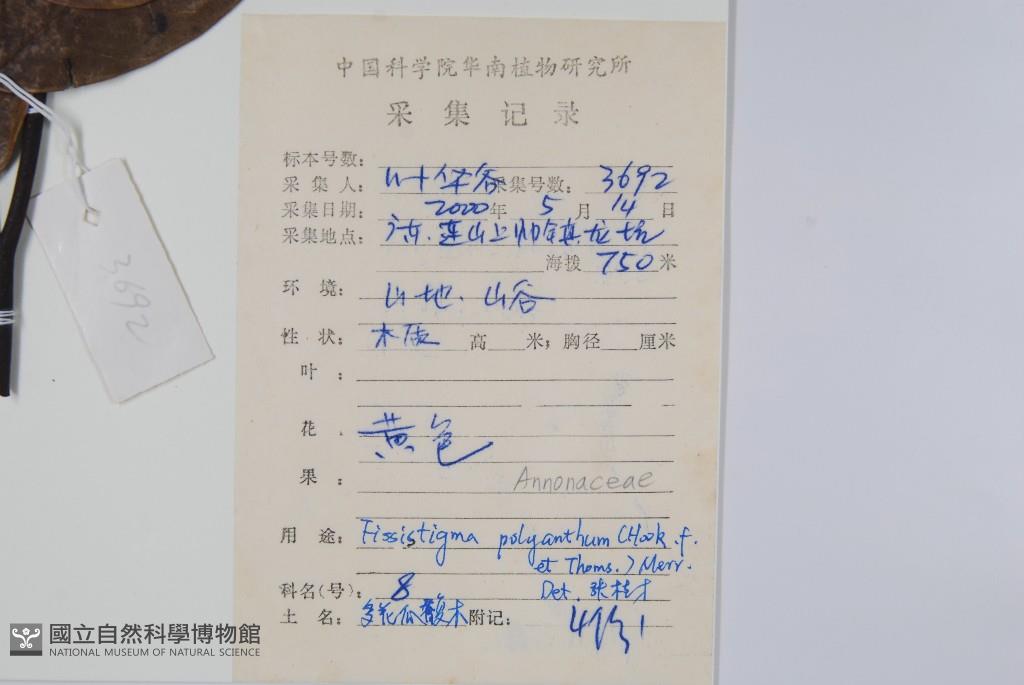 中国科学院华南植物研究所
采集记录
标本号数:
采集人: 叶华谷 采集号数: 3692
采集日期: 2000年 5月 14日
采集地点: 连山上帅镇
海拨 750米
环境: 山地. 山谷
性状: 木质 高 米; 胸径 厘米
叶:
花. 黄色
果:
Annonaceae
用途: Fissistigma polyanthum (Hook.f.
et Thoms.) Merr.
科名(号): 8 Det. 张桂才
土名: 多花瓜馥木 附记:
3692
國立自然科學博物館
NATIONAL MUSEUM OF NATURAL SCIENCE